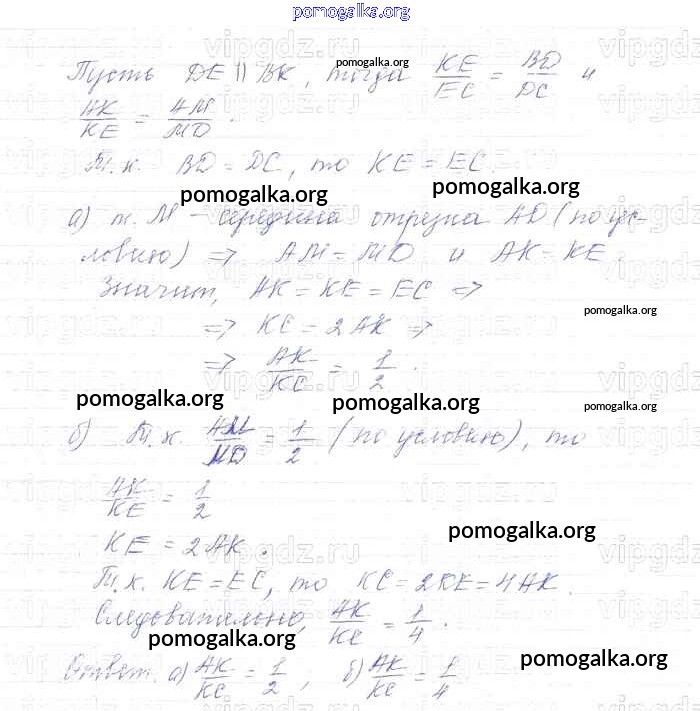 pomogalka.org
Пусть DE || BK, тогда KE/EC = BD/DC и
pomogalka.org
AK/KE = AM/MD.
Т.к. BD = DC, то KE = EC.
pomogalka.org pomogalka.org
а) т. M - середина отрезка AD (по ус-
ловию) => AM = MD и AK = KE
Значит, AK = KE = EC =>
pomogalka.org
=> KC = 2AK =>
=> AK/KC = 1/2.
pomogalka.org pomogalka.org pomogalka.org
б) Т.к. AM/MD = 1/2 (по условию), то
AK/KE = 1/2
pomogalka.org
KE = 2AK.
Т.к. KE = EC, то KC = 2KE = 4AK.
Следовательно, AK/KC = 1/4.
pomogalka.org pomogalka.org
Ответ. а) AK/KC = 1/2, б) AK/KC = 1/4
vipgdz.ru